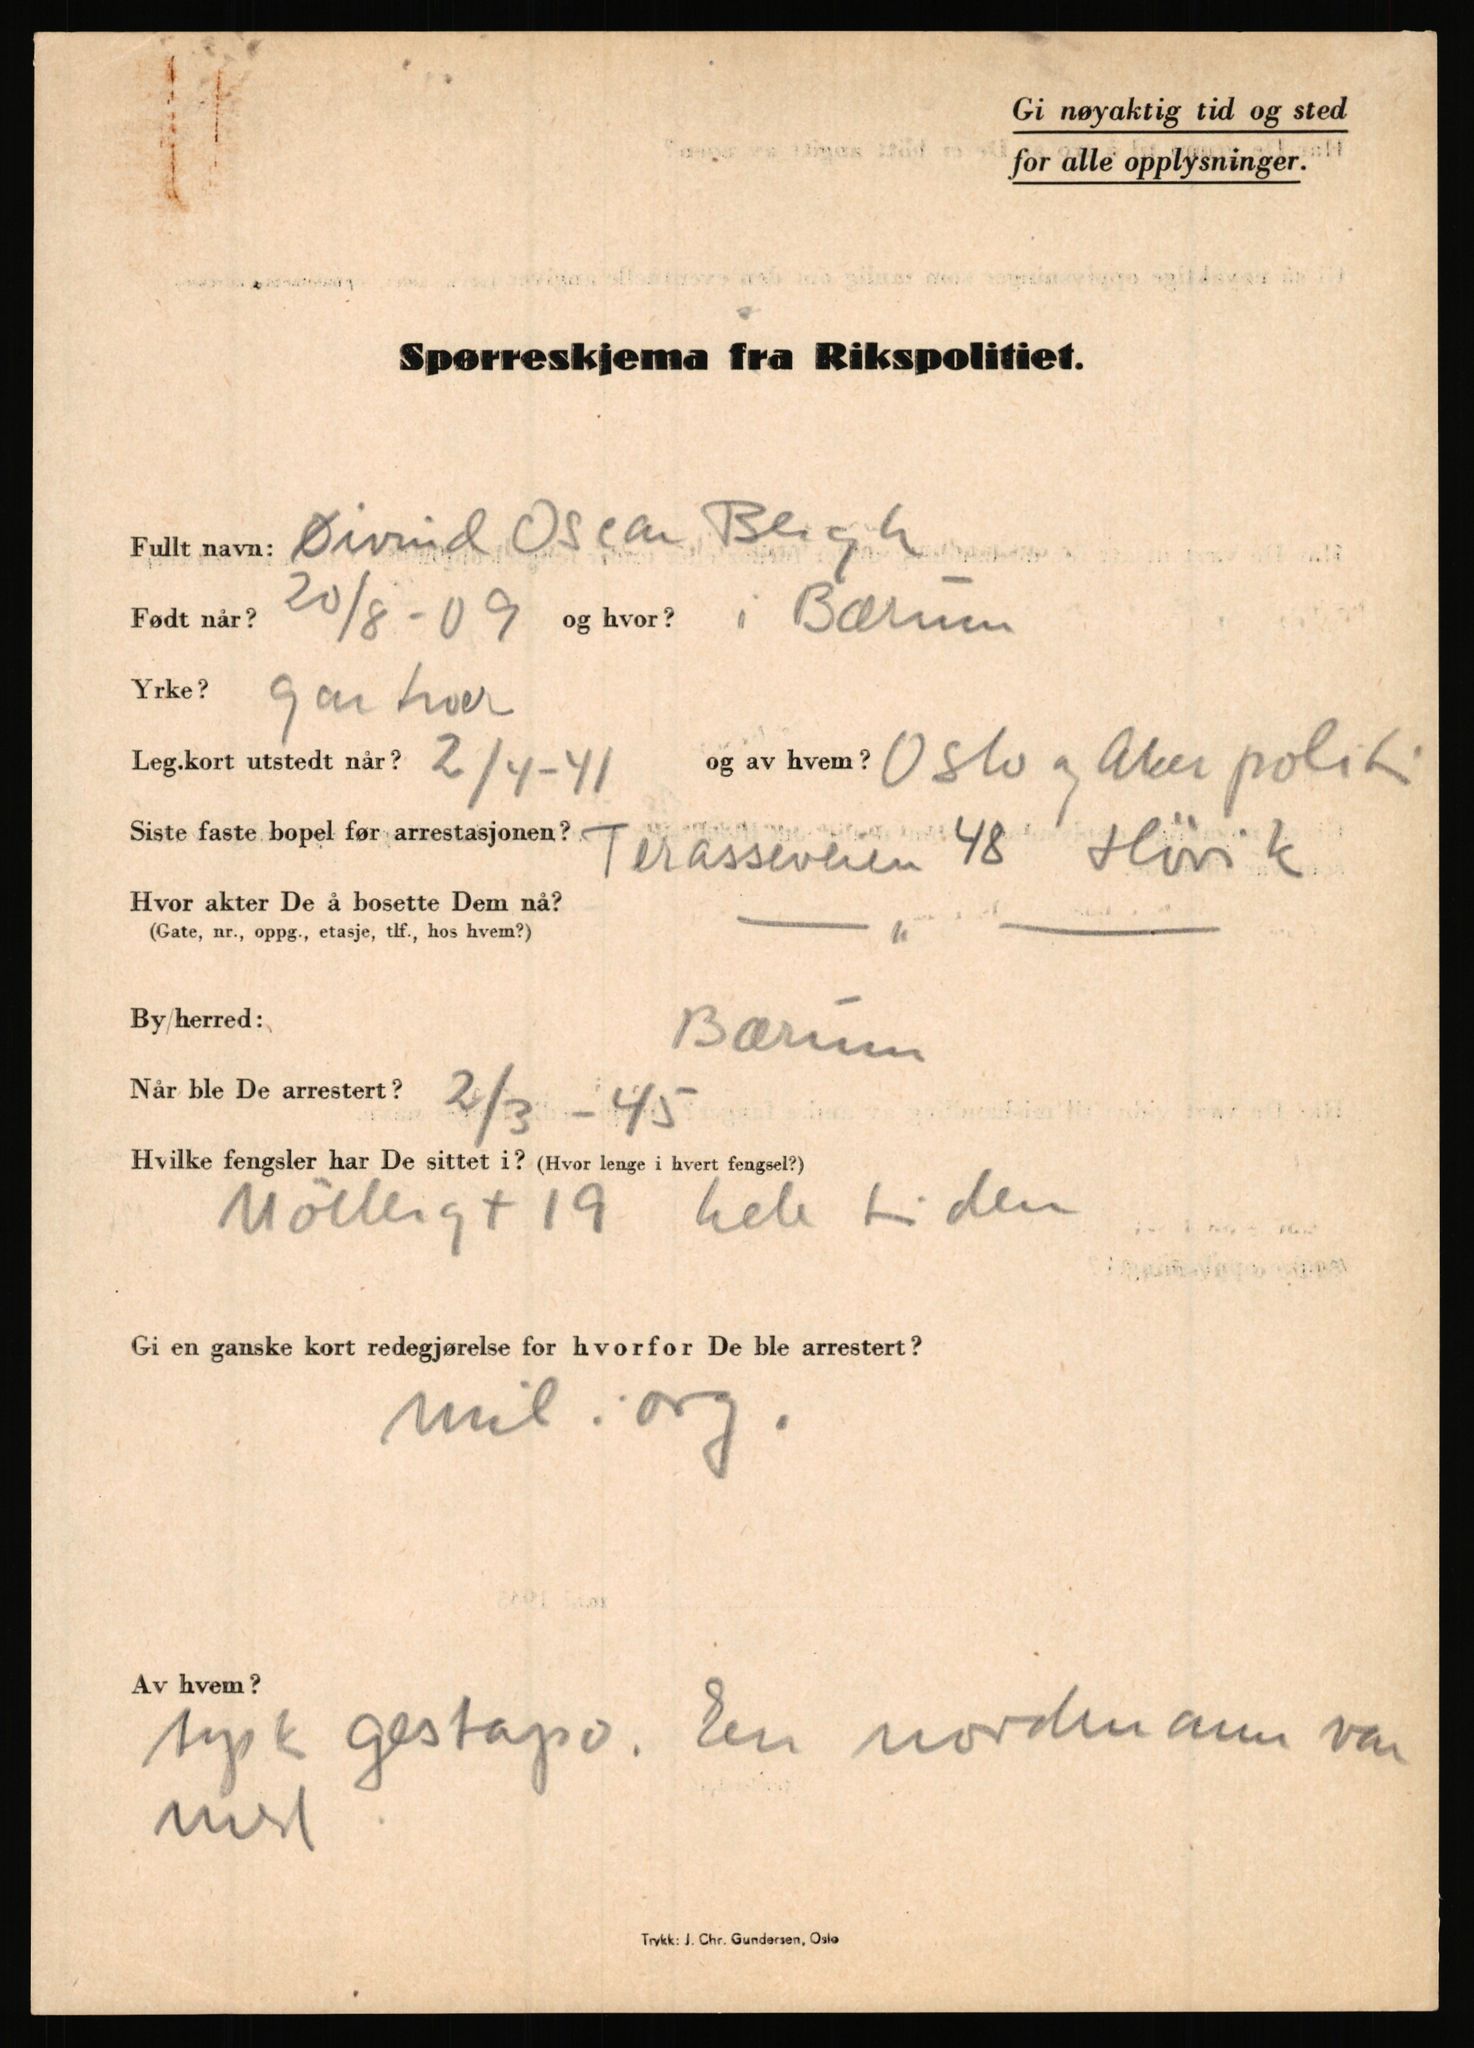 Gi nøyaktig tid og sted
for alle opplysninger.
Spørreskjema fra Rikspolitiet.
Fullt navn: Øivind Oscar Bergh
Født når? 20/8-09 og hvor? i Bærum
Yrke? gartner
Leg.kort utstedt når? 2/4-41 og av hvem? Oslo og Aker politi
Siste faste bopel før arrestasjonen? Terasseveien 48 Hövik
Hvor akter De å bosette Dem nå? — " —
(Gate, nr., oppg., etasje, tlf., hos hvem?)
By/herred: Bærum
Når ble De arrestert? 2/3-45
Hvilke fengsler har De sittet i? (Hvor lenge i hvert fengsel?)
Möllergt 19 hele tiden
Gi en ganske kort redegjørelse for hvorfor De ble arrestert?
mil. org.
Av hvem?
tysk gestapo. En nordmann var
med
Trykk: J. Chr. Gundersen, Oslo